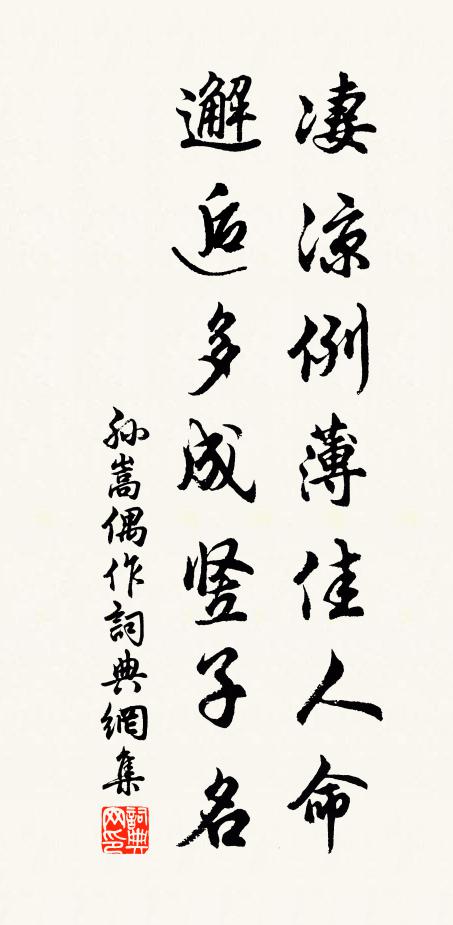 凄凉例薄佳人命
邂逅多成竖子名
孙嵩偶作詞典網集
詞典网印